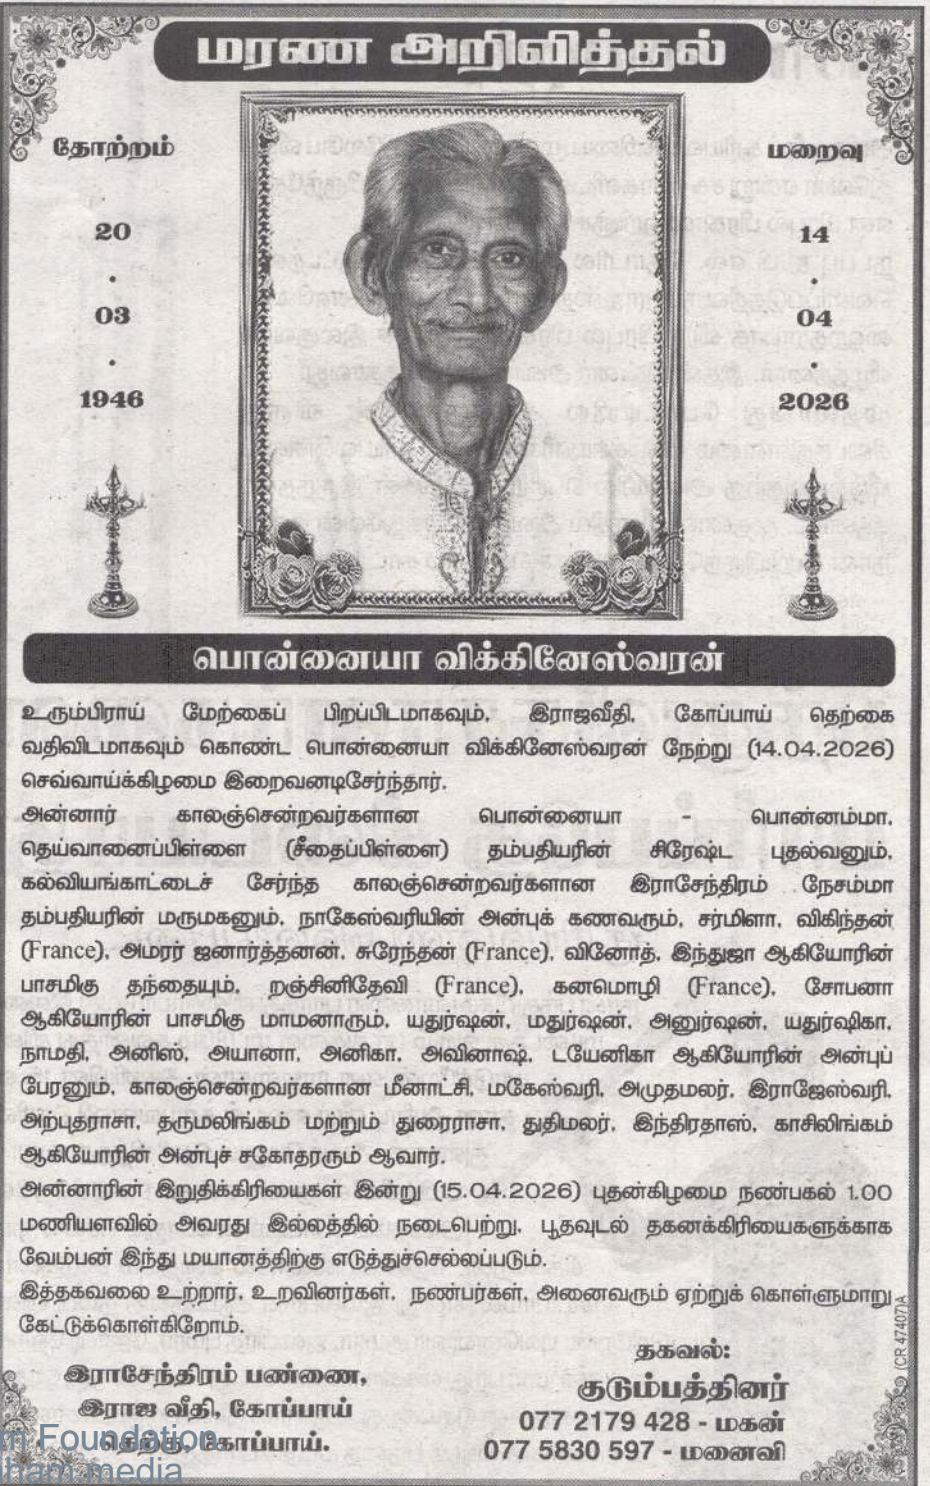 மரண அறிவித்தல்
தோற்றம்
20
.
03
.
1946
மறைவு
14
.
04
.
2026
பொன்னையா விக்கினேஸ்வரன்
உரும்பிராய் மேற்கைப் பிறப்பிடமாகவும், இராஜவீதி, கோப்பாய் தெற்கை
வதிவிடமாகவும் கொண்ட பொன்னையா விக்கினேஸ்வரன் நேற்று (14.04.2026)
செவ்வாய்க்கிழமை இறைவனடிசேர்ந்தார்.
அன்னார் காலஞ்சென்றவர்களான பொன்னையா - பொன்னம்மா,
தெய்வானைப்பிள்ளை (சீதைப்பிள்ளை) தம்பதியரின் சிரேஷ்ட புதல்வனும்,
கல்வியங்காட்டைச் சேர்ந்த காலஞ்சென்றவர்களான இராசேந்திரம் நேசம்மா
தம்பதியரின் மருமகனும், நாகேஸ்வரியின் அன்புக் கணவரும், சர்மிளா, விகிந்தன்
(France), அமரர் ஜனார்த்தனன், சுரேந்தன் (France), வினோத், இந்துஜா ஆகியோரின்
பாசமிகு தந்தையும், றஞ்சினிதேவி (France), கனமொழி (France), சோபனா
ஆகியோரின் பாசமிகு மாமனாரும், யதுர்ஷன், மதுர்ஷன், அனுர்ஷன், யதுர்ஷிகா,
நாமதி, அனிஸ், அயானா, அனிகா, அவினாஷ், டயேனிகா ஆகியோரின் அன்புப்
பேரனும், காலஞ்சென்றவர்களான மீனாட்சி, மகேஸ்வரி, அமுதமலர், இராஜேஸ்வரி,
அற்புதராசா, தருமலிங்கம் மற்றும் துரைராசா, துதிமலர், இந்திரதாஸ், காசிலிங்கம்
ஆகியோரின் அன்புச் சகோதரரும் ஆவார்.
அன்னாரின் இறுதிக்கிரியைகள் இன்று (15.04.2026) புதன்கிழமை நண்பகல் 1.00
மணியளவில் அவரது இல்லத்தில் நடைபெற்று, பூதவுடல் தகனக்கிரியைகளுக்காக
வேம்பன் இந்து மயானத்திற்கு எடுத்துச்செல்லப்படும்.
இத்தகவலை உற்றார், உறவினர்கள், நண்பர்கள், அனைவரும் ஏற்றுக் கொள்ளுமாறு
கேட்டுக்கொள்கிறோம்.
இராசேந்திரம் பண்ணை,
இராஜ வீதி, கோப்பாய்
தெற்கு, கோப்பாய்.
தகவல்:
குடும்பத்தினர்
077 2179 428 - மகன்
077 5830 597 - மனைவி
(CR 47407)A
m Foundation
ham.media